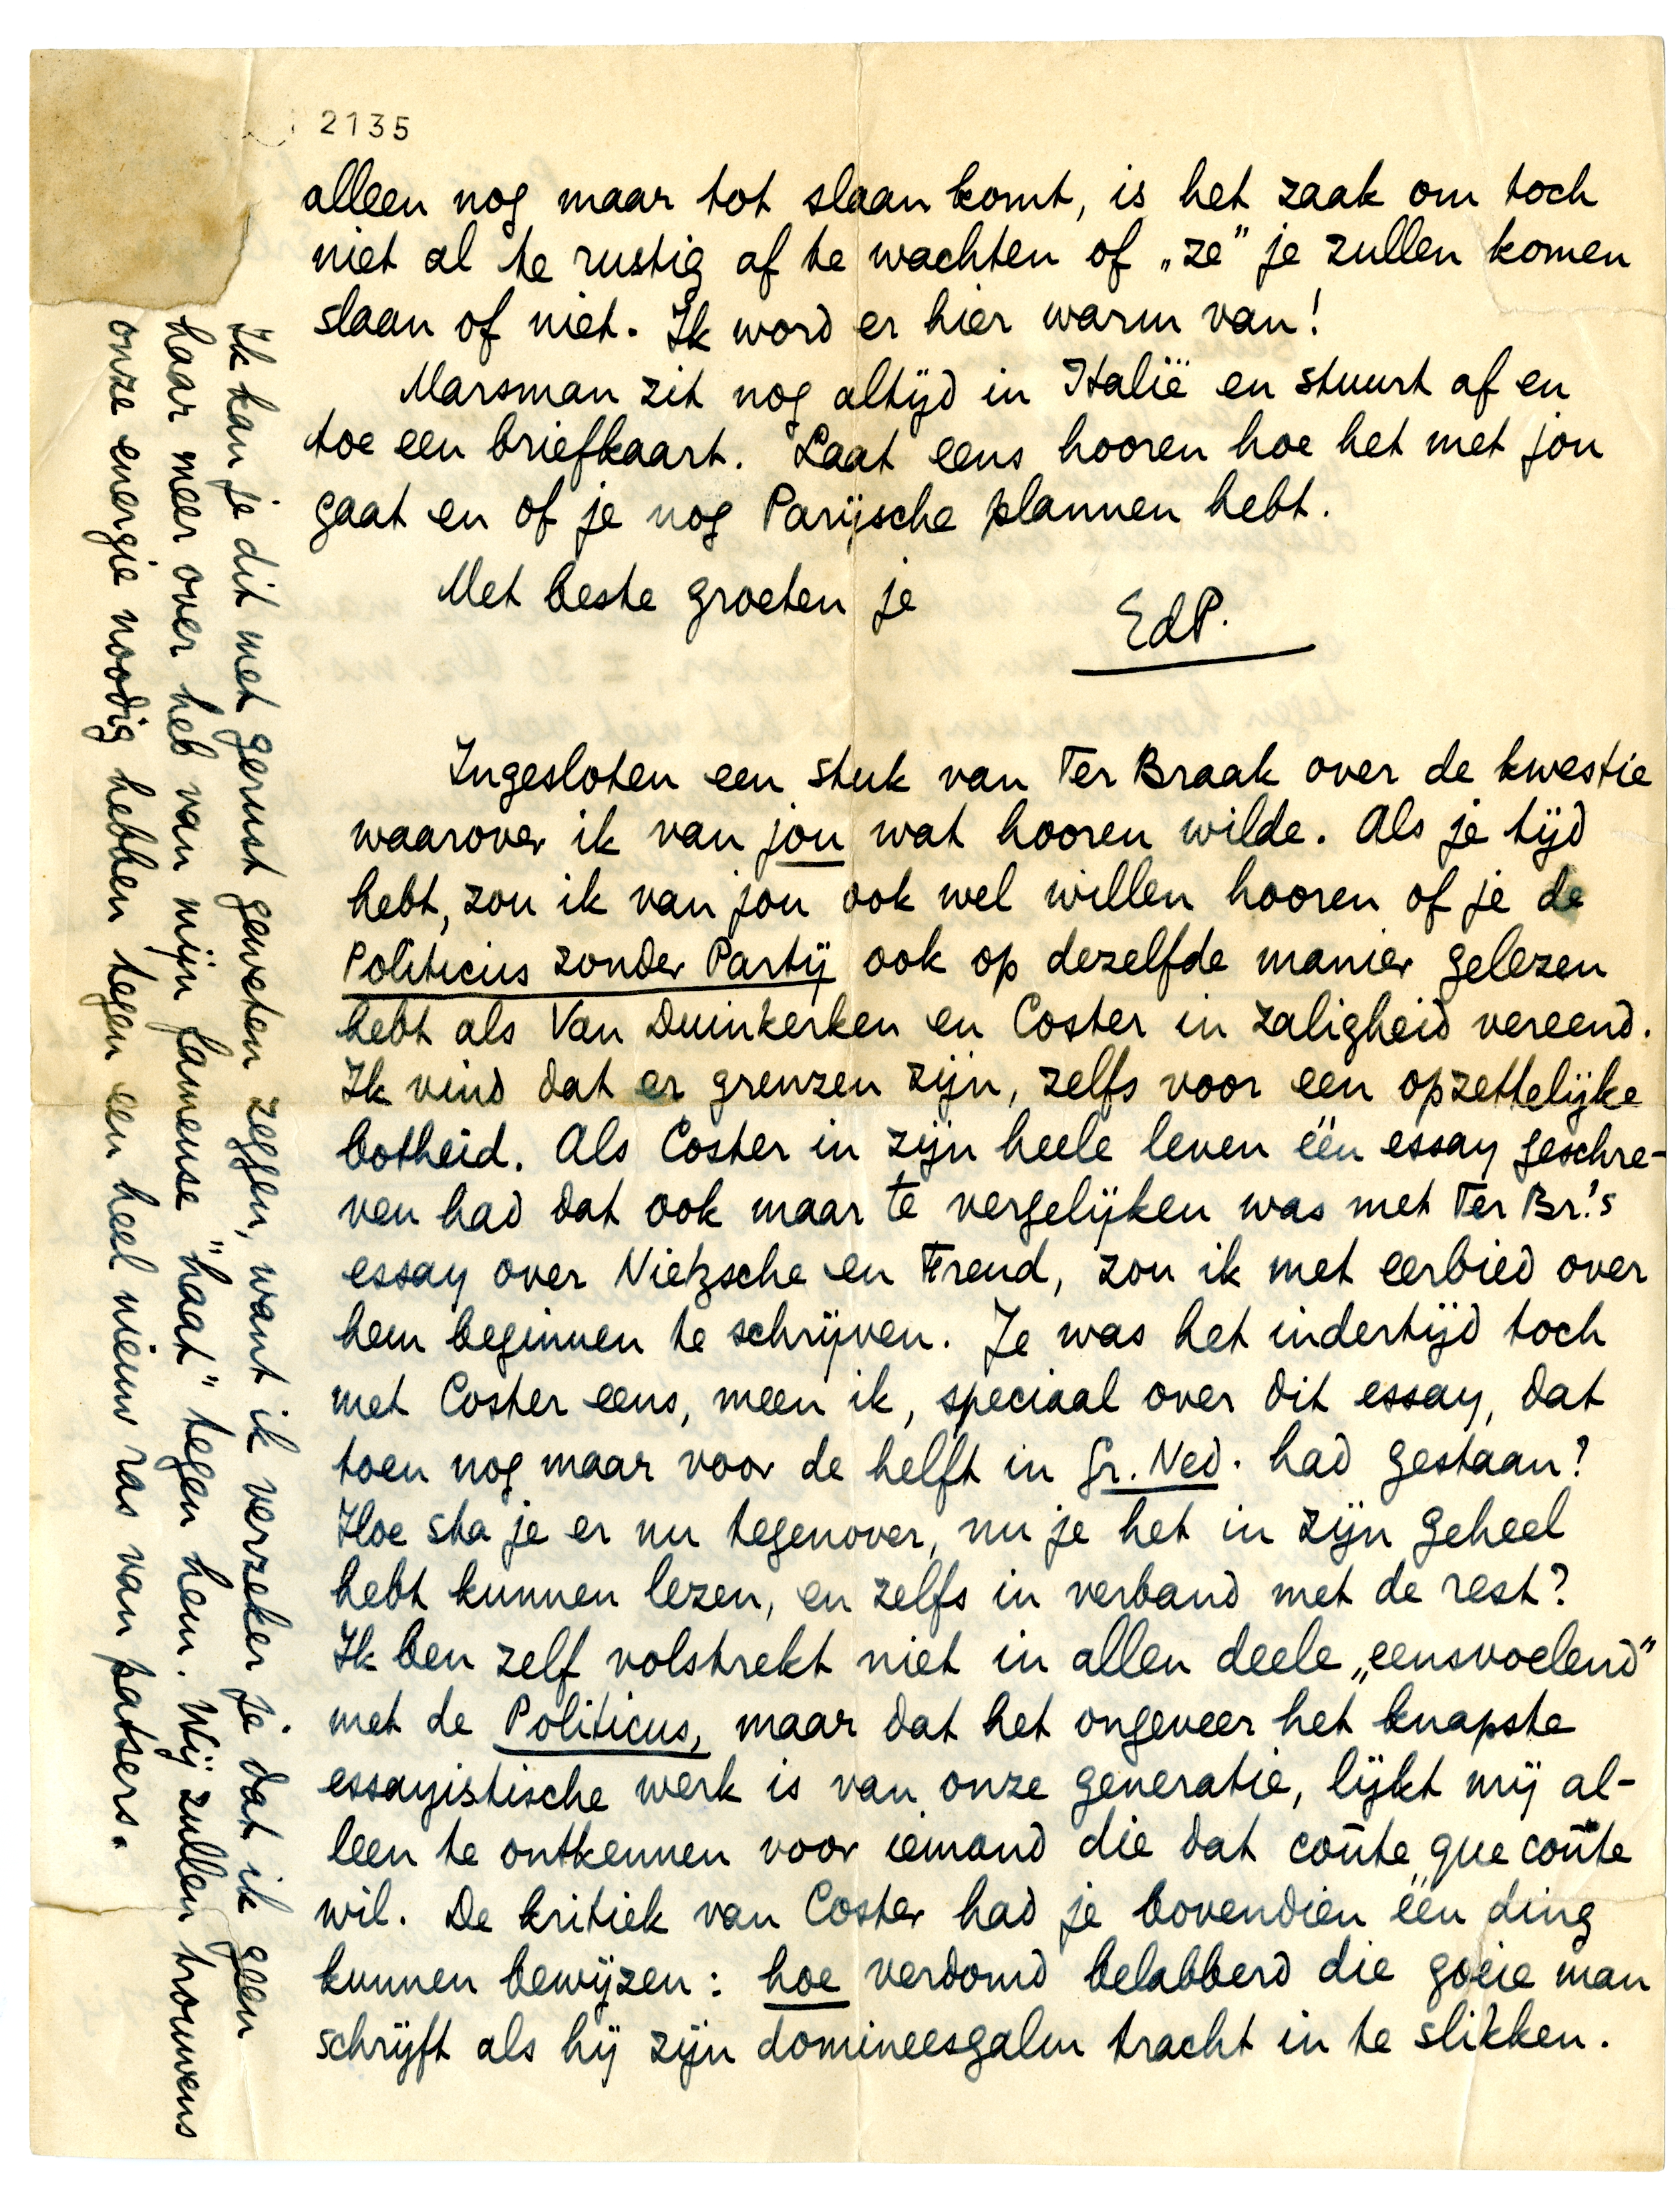 2135
alleen nog maar tot slaan komt, is het zaak om toch
niet al te rustig af te wachten of „ze” je zullen komen
slaan of niet. Ik word er hier warm van!
Marsman zit nog altijd in Italië en stuurt af en
toe een briefkaart. Laat eens hooren hoe het met jou
gaat en of je nog Parijsche plannen hebt.
Met beste groeten je
EdP.
Ingesloten een stuk van Ter Braak over de kwestie
waarover ik van jou wat hooren wilde. Als je tijd
hebt, zou ik van jou ook wel willen hooren of je de
Politicus zonder Partij ook op dezelfde manier gelezen
hebt als Van Duinkerken en Coster in zaligheid vereend.
Ik vind dat er grenzen zijn, zelfs voor een opzettelijke
botheid. Als Coster in zijn heele leven één essay geschre-
ven had dat ook maar te vergelijken was met Ter Br.'s
essay over Nietzsche en Freud, zou ik met eerbied over
hem beginnen te schrijven. Je was het indertijd toch
met Coster eens, meen ik, speciaal over dit essay, dat
toen nog maar voor de helft in Gr. Ned. had gestaan?
Hoe sta je er nu tegenover, nu je het in zijn geheel
hebt kunnen lezen, en zelfs in verband met de rest?
Ik ben zelf volstrekt niet in allen deele „eensvoelend”
met de Politicus, maar dat het ongeveer het knapste
essayistische werk is van onze generatie, lijkt mij al-
leen te ontkennen voor iemand die dat coûte que coûte
wil. De kritiek van Coster had je bovendien één ding
kunnen bewijzen: hoe verdomd belabberd die goeie man
schrijft als hij zijn domineesgalm tracht in te slikken.
Ik kan je dit met gerust geweten zeggen, want ik verzeker je dat ik geen
haar meer over heb van mijn fameuse "haat" tegen hem. Wij zullen trouwens
onze energie noodig hebben tegen een heel nieuw ras van patsers.